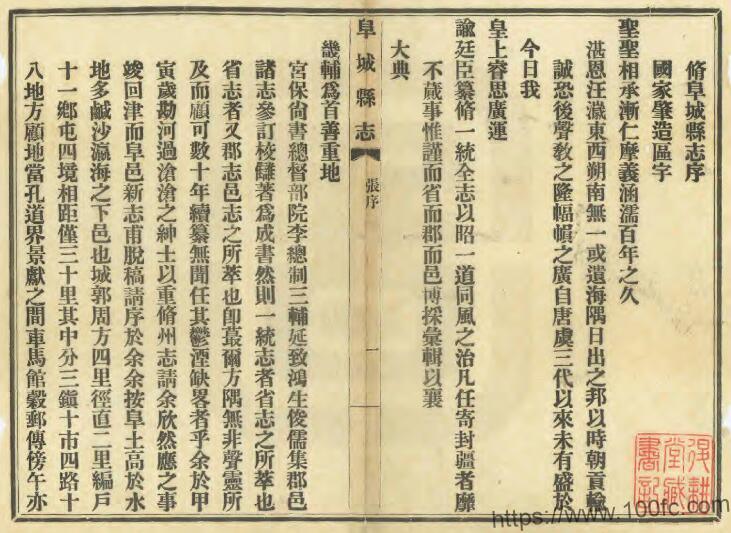 脩阜城縣志序
國家肇造區宇
聖聖相承漸仁摩義涵濡百年之久
湛恩汪濊東西朔南無一或遺海隅日出之邦以時朝貢輸
誠恐後聲敎之隆幅幀之廣自唐虞三代以來未有盛於
今日我
皇上睿思廣運
諭廷臣纂脩一統全志以昭一道同風之治凡任寄封疆者靡
不蕆事惟謹而省而郡而邑博採彙輯以襄
大典
阜城縣志
張序
一
畿輔爲首善重地
宮保尙書總督部院李總制三輔延致鴻生俊儒集郡邑
諸志參訂校讎著爲成書然則一統志者省志之所萃也
省志者又郡志邑志之所萃也卽蕞爾方隅無非聲靈所
及而顧可數十年續纂無聞任其鬱湮缺畧者乎余於甲
寅歲勘河過滄滄之紳士以重脩州志請余欣然應之事
竣回津而阜邑新志甫脫稿請序於余余按阜土高於水
地多鹹沙瀛海之下邑也城郭周方四里徑直二里編戶
十一鄉屯四境相距僅三十里其中分三鎭十市四路十
八地方顧地當孔道界景獻之間車馬館穀郵傳傍午亦
堂藏
書記
https://www.100fc.com